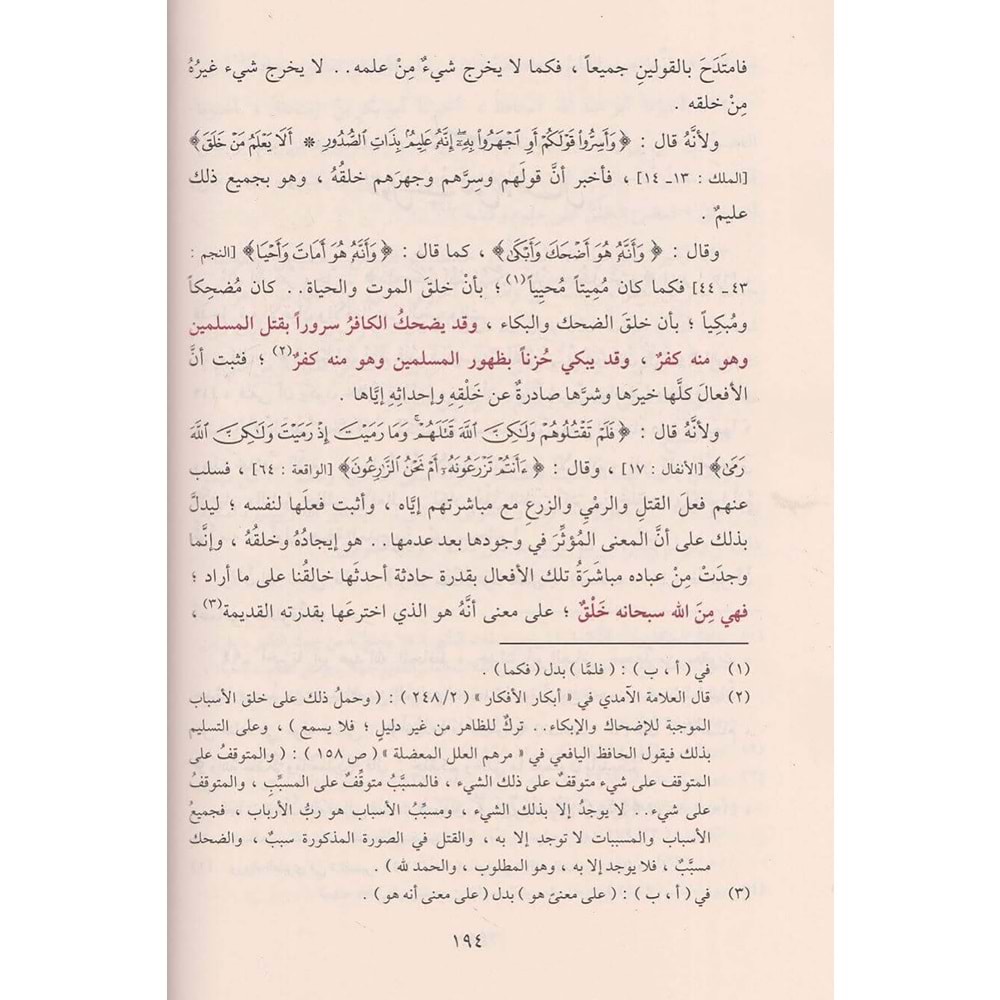 فامتَدَحَ بالقولينِ جميعاً ، فكما لا يخرج شيءٌ مِنْ علمه . . لا يخرج شيء غيرُهُ
مِنْ خلقه .
ولأنَّهُ قال : ﴿ وَأَسِرُّوا قَوْلَكُمْ أَوِ اجْهَرُوا بِهِ ۖ إِنَّهُ عَلِيمٌ بِذَاتِ الصُّدُورِ * أَلَا يَعْلَمُ مَنْ خَلَقَ ﴾
[الملك : ١٣ـ ١٤] ، فأخبر أنَّ قولَهم وسِرَّهم وجهرَهم خلقُهُ ، وهو بجميع ذلك
عليمٌ .
وقال : ﴿ وَأَنَّهُ هُوَ أَضْحَكَ وَأَبْكَىٰ ﴾ ، كما قال : ﴿ وَأَنَّهُ هُوَ أَمَاتَ وَأَحْيَا ﴾ [النجم :
٤٣ـ ٤٤] فكما كان مُمِيتاً مُحيِياً(١) ؛ بأنْ خلقَ الموت والحياة . . كان مُضحِكاً
ومُبكِياً ؛ بأن خلقَ الضحك والبكاء ، وقد يضحكُ الكافرُ سروراً بقتل المسلمين
وهو منه كفرٌ ، وقد يبكي حُزناً بظهور المسلمين وهو منه كفرٌ(٢) ؛ فثبت أنَّ
الأفعالَ كلَّها خيرَها وشرَّها صادرةٌ عن خَلْقِهِ وإحداثِهِ إيَّاها .
ولأنَّهُ قال : ﴿ فَلَمْ تَقْتُلُوهُمْ وَلَٰكِنَّ اللَّهَ قَتَلَهُمْ ۚ وَمَا رَمَيْتَ إِذْ رَمَيْتَ وَلَٰكِنَّ اللَّهَ
رَمَىٰ ﴾ [الأنفال : ١٧] ، وقال : ﴿ ءَأَنتُمْ تَزْرَعُونَهُ أَمْ نَحْنُ الزَّارِعُونَ ﴾ [الواقعة : ٦٤] ، فسلب
عنهم فعلَ القتلِ والرميِ والزرعِ مع مباشرتهم إيَّاه ، وأثبت فعلَها لنفسه ؛ ليدلَّ
بذلك على أنَّ المعنى المُؤثِّرَ في وجودها بعد عدمها . . هو إيجادُهُ وخلقُهُ ، وإنَّما
وجدَتْ مِنْ عباده مباشَرَةُ تلك الأفعال بقدرة حادثة أحدثَها خالقُنا على ما أراد ؛
فهي مِنَ الله سبحانه خَلْقٌ ؛ على معنى أنَّهُ هو الذي اخترعَها بقدرته القديمة(٣) ،
(١) في ( أ ، ب ) : ( فلمَّا ) بدل ( فكما ) .
(٢) قال العلامة الآمدي في « أبكار الأفكار » ( ٢/ ٢٤٨ ) : ( وحملُ ذلك على خلق الأسباب
الموجبة للإضحاك والإبكاء . . تركٌ للظاهر من غير دليلٍ ؛ فلا يسمع ) ، وعلى التسليم
بذلك فيقول الحافظ اليافعي في « مرهم العلل المعضلة » ( ص ١٥٨ ) : ( والمتوقفُ على
المتوقف على شيء متوقفٌ على ذلك الشيء ، فالمسبَّبُ متوقِّفٌ على المسبِّبِ ، والمتوقفُ
على شيء . . لا يوجدُ إلا بذلك الشيء ، ومسبِّبُ الأسباب هو ربُّ الأرباب ، فجميعُ
الأسباب والمسببات لا توجد إلا به ، والقتل في الصورة المذكورة سببٌ ، والضحك
مسبَّبٌ ، فلا يوجد إلا به ، وهو المطلوب ، والحمد لله ) .
(٣) في ( أ ، ب ) : ( على معنىً هو ) بدل ( على معنى أنه هو ) .
١٩٤